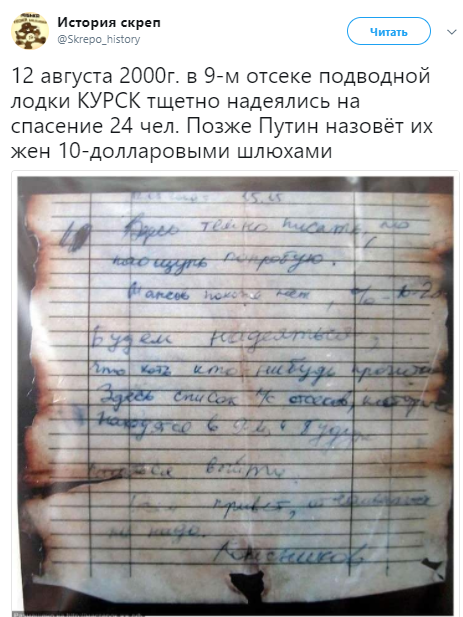 История скреп
@Skrepo_history
Читать
12 августа 2000г. в 9-м отсеке подводной
лодки КУРСК тщетно надеялись на
спасение 24 чел. Позже Путин назовёт их
жен 10-долларовыми шлюхами
15.15
Здесь темно писать, но
наощупь попробую.
Шансов похоже нет, %
Будем надеяться,
что хоть кто-нибудь
Здесь список л/с отсеков,
находятся в 9-м и будут
выйти.
привет, отчаиваться
не надо.
Колесников